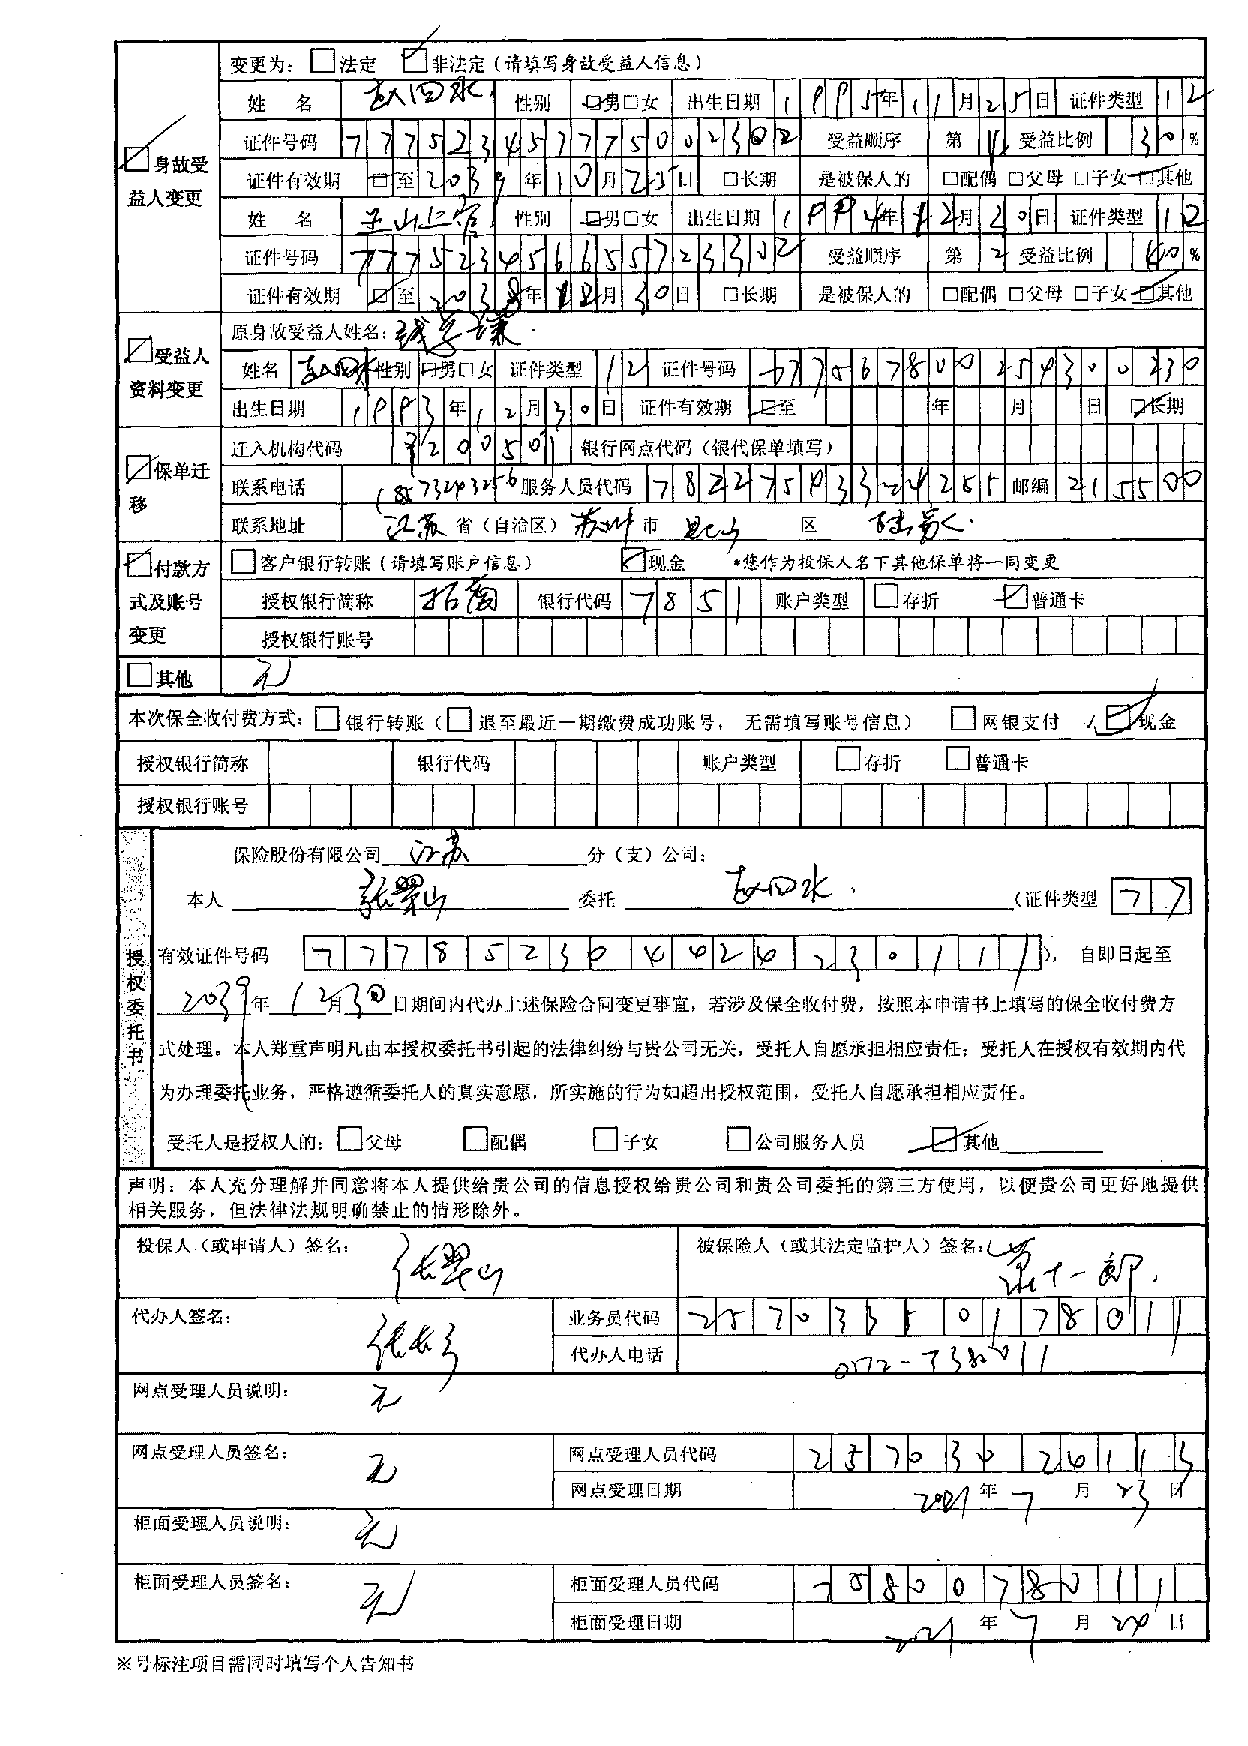 变更为：□法定 ☑非法定（请填写身故受益人信息）
☑身故受益人变更
姓 名 赵四水 性别 ☑男□女 出生日期 1995年11月25日 证件类型 12
证件号码 7775234537775002302 受益顺序 第 受益比例 30%
证件有效期 ☑至2039年10月25日 □长期 是被保人的 □配偶 □父母 □子女 ☑其他
姓 名 性别 ☑男□女 出生日期 1994年12月20日 证件类型 12
证件号码 受益顺序 第2 受益比例 40%
证件有效期 ☑至2038年12月30日 □长期 是被保人的 □配偶 □父母 □子女 ☑其他
☑受益人资料变更
原身故受益人姓名：钱学谦
姓名 赵四水 性别 ☑男□女 证件类型 12 证件号码 777567800254300230
出生日期 1993年12月30日 证件有效期 □至 年 月 日 ☑长期
☑保单迁移
迁入机构代码 3200501 银行网点代码（银代保单填写）
联系电话 18573243256 服务人员代码 邮编 215500
联系地址 江苏 省（自治区） 苏州 市 昆山 区
☑付款方式及账号变更
□客户银行转账（请填写账户信息） ☑现金 *您作为投保人名下其他保单将一同变更
授权银行简称 招商 银行代码 7851 账户类型 □存折 ☑普通卡
授权银行账号
□其他 无
本次保全收付费方式：□银行转账（□退至最近一期缴费成功账号，无需填写账号信息） □网银支付 ☑现金
授权银行简称 银行代码 账户类型 □存折 □普通卡
授权银行账号
授权委托书
保险股份有限公司 江苏 分（支）公司：
本人 张翠山 委托 赵四水 （证件类型 77
有效证件号码 777852304424230111），自即日起至
2039年12月30日期间内代办上述保险合同变更事宜，若涉及保全收付费，按照本申请书上填写的保全收付费方
式处理。本人郑重声明凡由本授权委托书引起的法律纠纷与贵公司无关，受托人自愿承担相应责任；受托人在授权有效期内代
为办理委托业务，严格遵循委托人的真实意愿，所实施的行为如超出授权范围，受托人自愿承担相应责任。
受托人是授权人的：□父母 □配偶 □子女 □公司服务人员 ☑其他
声明：本人充分理解并同意将本人提供给贵公司的信息授权给贵公司和贵公司委托的第三方使用，以便贵公司更好地提供
相关服务，但法律法规明确禁止的情形除外。
投保人（或申请人）签名： 张翠山 被保险人（或其法定监护人）签名： 萧十一郎
代办人签名： 业务员代码 25703350178011
代办人电话 0572-7382011
网点受理人员说明： 无
网点受理人员签名： 无 网点受理人员代码 25703024113
网点受理日期 2021年7月23日
柜面受理人员说明： 无
柜面受理人员签名： 无 柜面受理人员代码 7580078011
柜面受理日期 2021年7月24日
※号标注项目需同时填写个人告知书